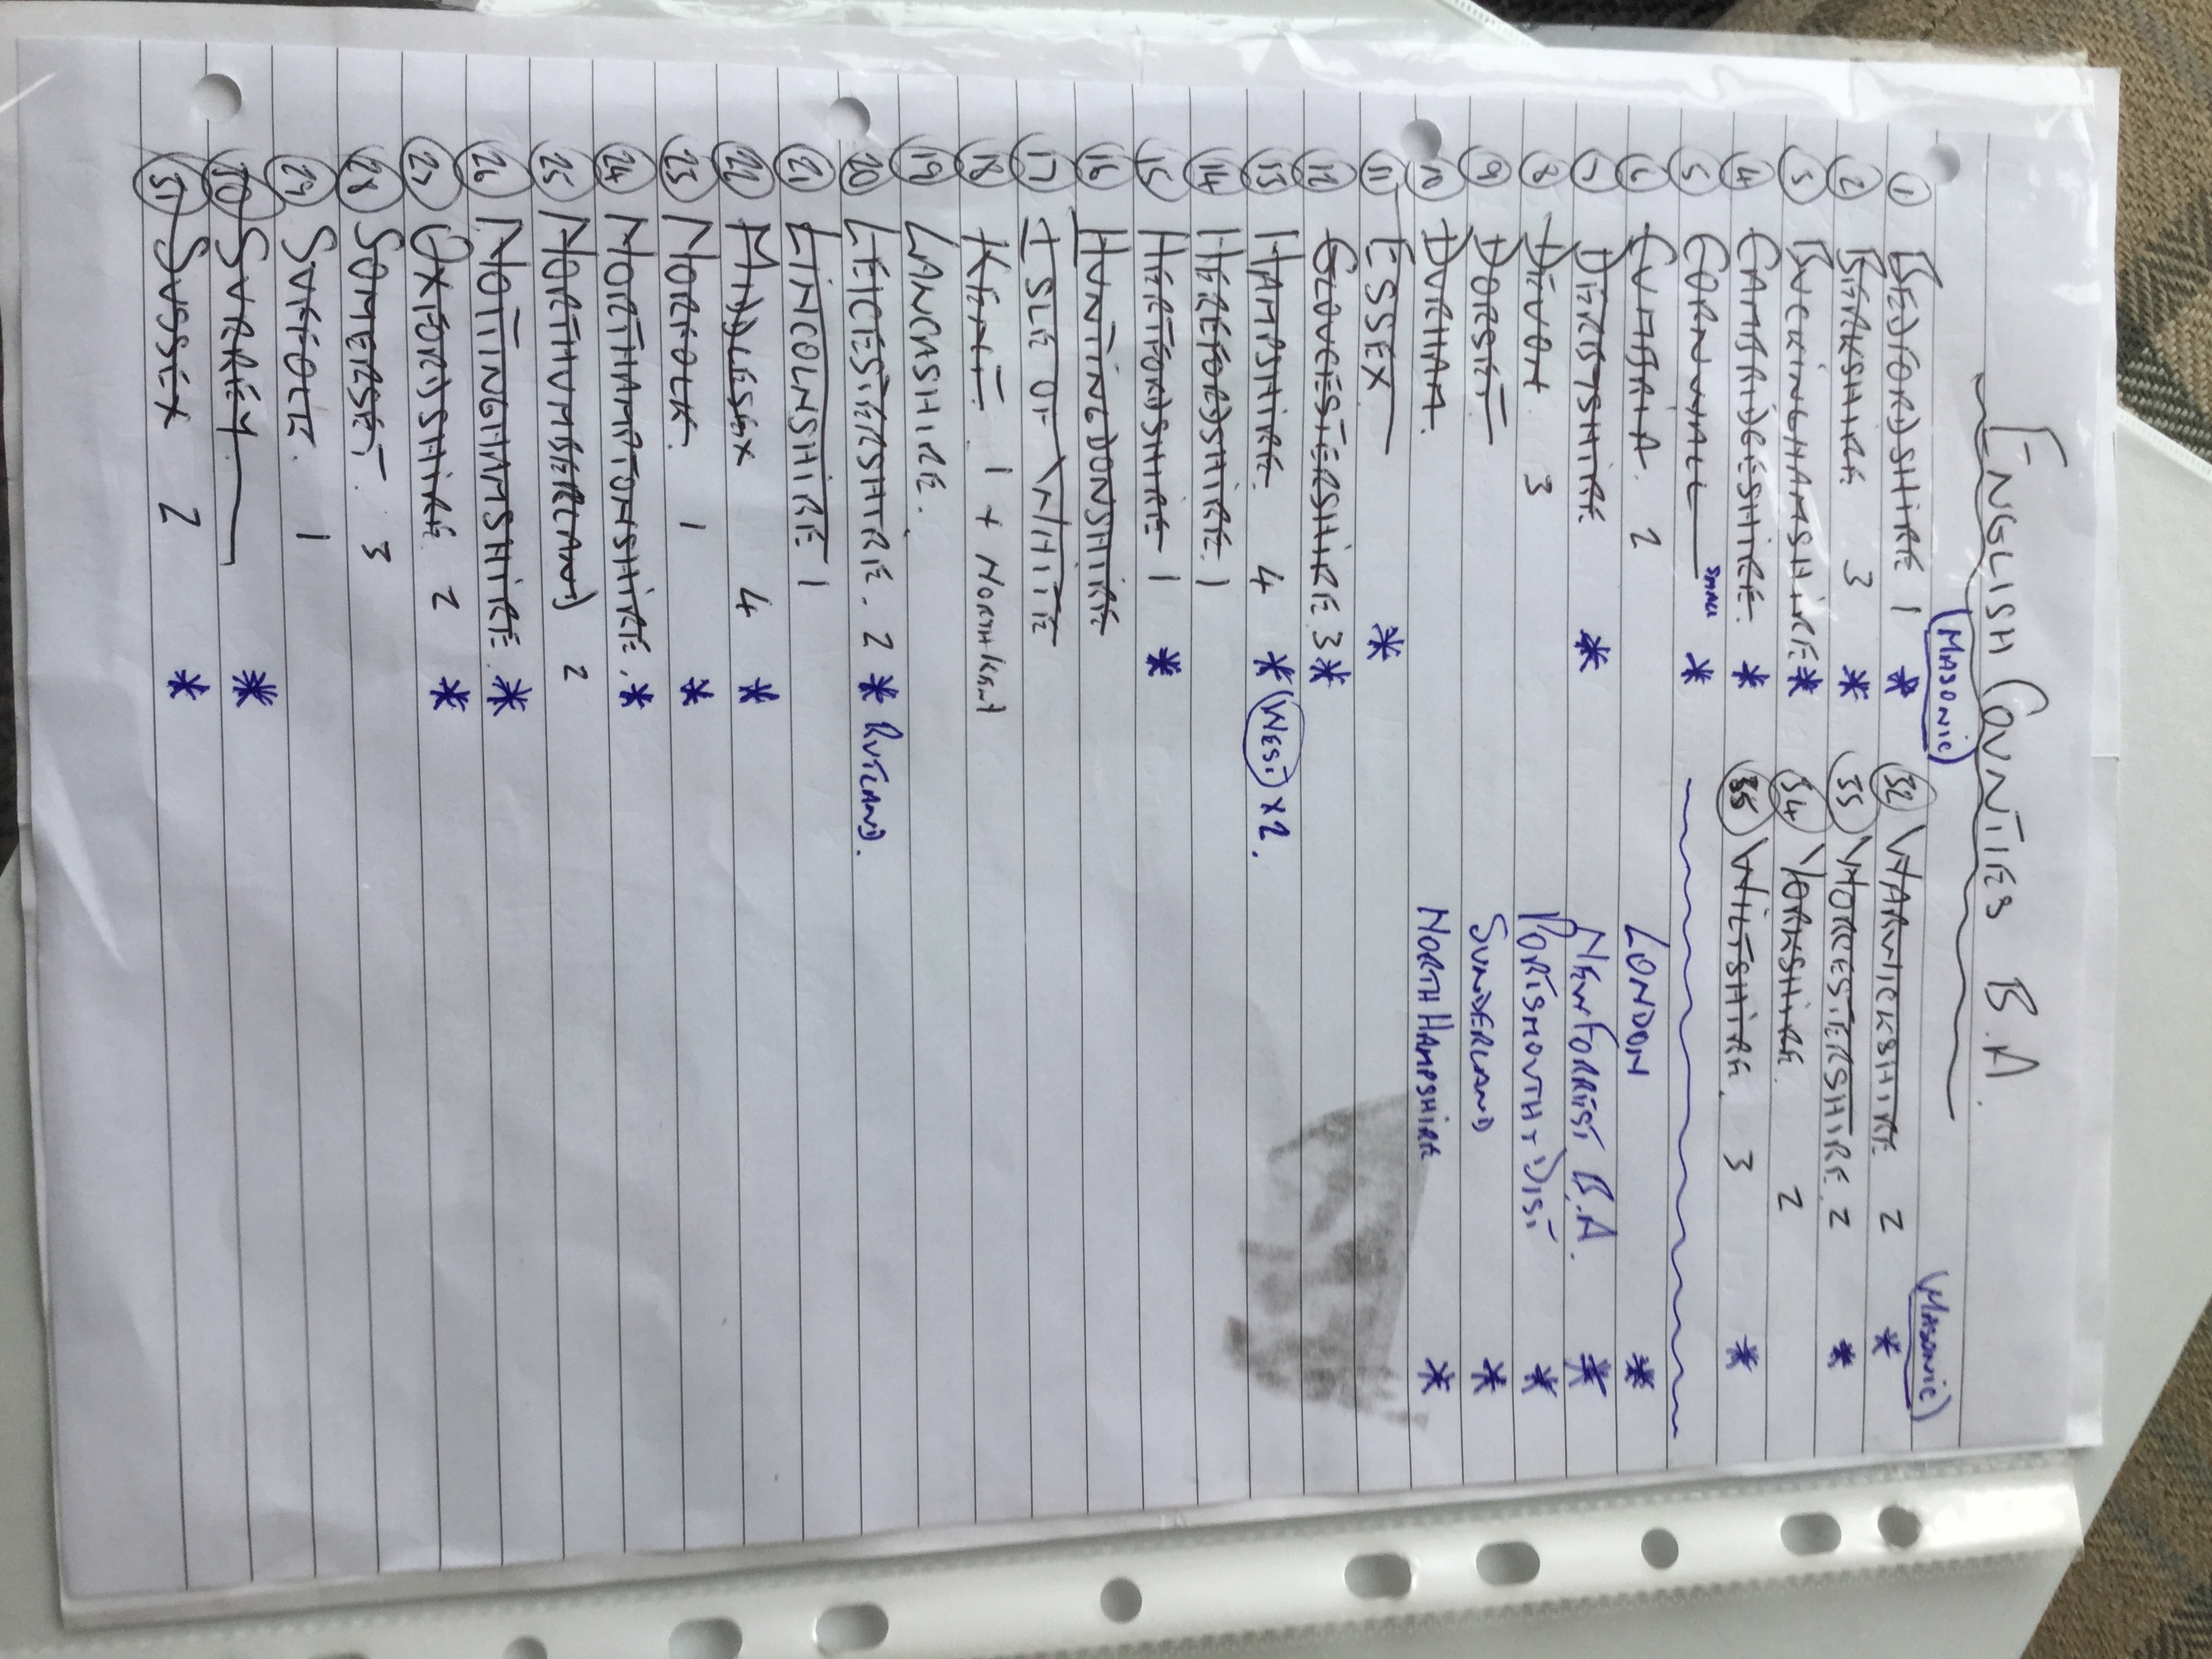 ENGLISH COUNTIES B.A.
MASONIC
MASONIC
① BEDFORDSHIRE 1 *
② BERKSHIRE 3 *
③ BUCKINGHAMSHIRE *
④ CAMBRIDGESHIRE. *
⑤ CORNWALL *
⑥ CUMBRIA. 2
⑦ DERBYSHIRE *
⑧ DEVON 3
⑨ DORSET
⑩ DURHAM.
⑪ ESSEX *
⑫ GLOUCESTERSHIRE 3 *
⑬ HAMPSHIRE. 4 * WEST x 2.
⑭ HEREFORDSHIRE. 1
⑮ HERTFORDSHIRE 1 *
⑯ HUNTINGDONSHIRE
⑰ ISLE OF WHITE
⑱ KENT 1 + NORTH KENT
⑲ LANCASHIRE.
⑳ LEICESTERSHIRE. 2 * RUTLAND.
㉑ LINCOLNSHIRE 1
㉒ MIDDLESEX 4 *
㉓ NORFOLK. 1 *
㉔ NORTHAMPTONSHIRE. *
㉕ NORTHUMBERLAND 2
㉖ NOTTINGHAMSHIRE. *
㉗ OXFORDSHIRE 2 *
㉘ SOMERSET. 3
㉙ SUFFOLK. 1
㉚ SURREY *
㉛ SUSSEX 2 *
㉜ WARWICKSHIRE 2 *
㉝ WORCESTERSHIRE. 2 *
㉞ YORKSHIRE. 2
㉟ WILTSHIRE. 3 *
LONDON *
NEW FORREST B.A. *
PORTSMOUTH + DIST *
SUNDERLAND *
NORTH HAMPSHIRE *